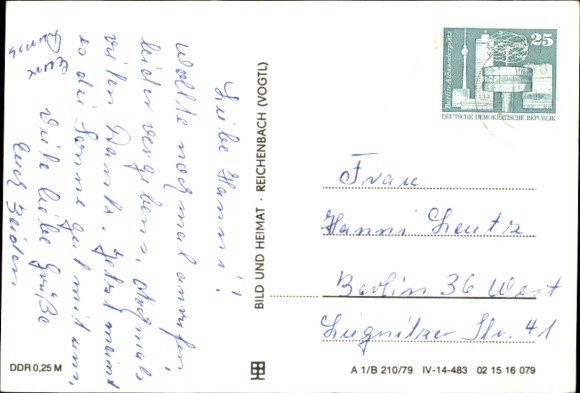 Liebe Hanni!
Wollte nochmal anrufen,
leider vergebens. Nochmals
vielen Dank. Jetzt meint
es die Sonne gut mit uns,
Viele liebe Grüße
Euch Beiden
Eure
BILD UND HEIMAT · REICHENBACH (VOGTL)
25
Berlin-Alexanderplatz
DEUTSCHE DEMOKRATISCHE REPUBLIK
Frau
Hanni Leutz
Berlin 36 West
Liegnitzer Str. 41
DDR 0,25 M
A 1/B 210/79 IV-14-483 02 15 16 079